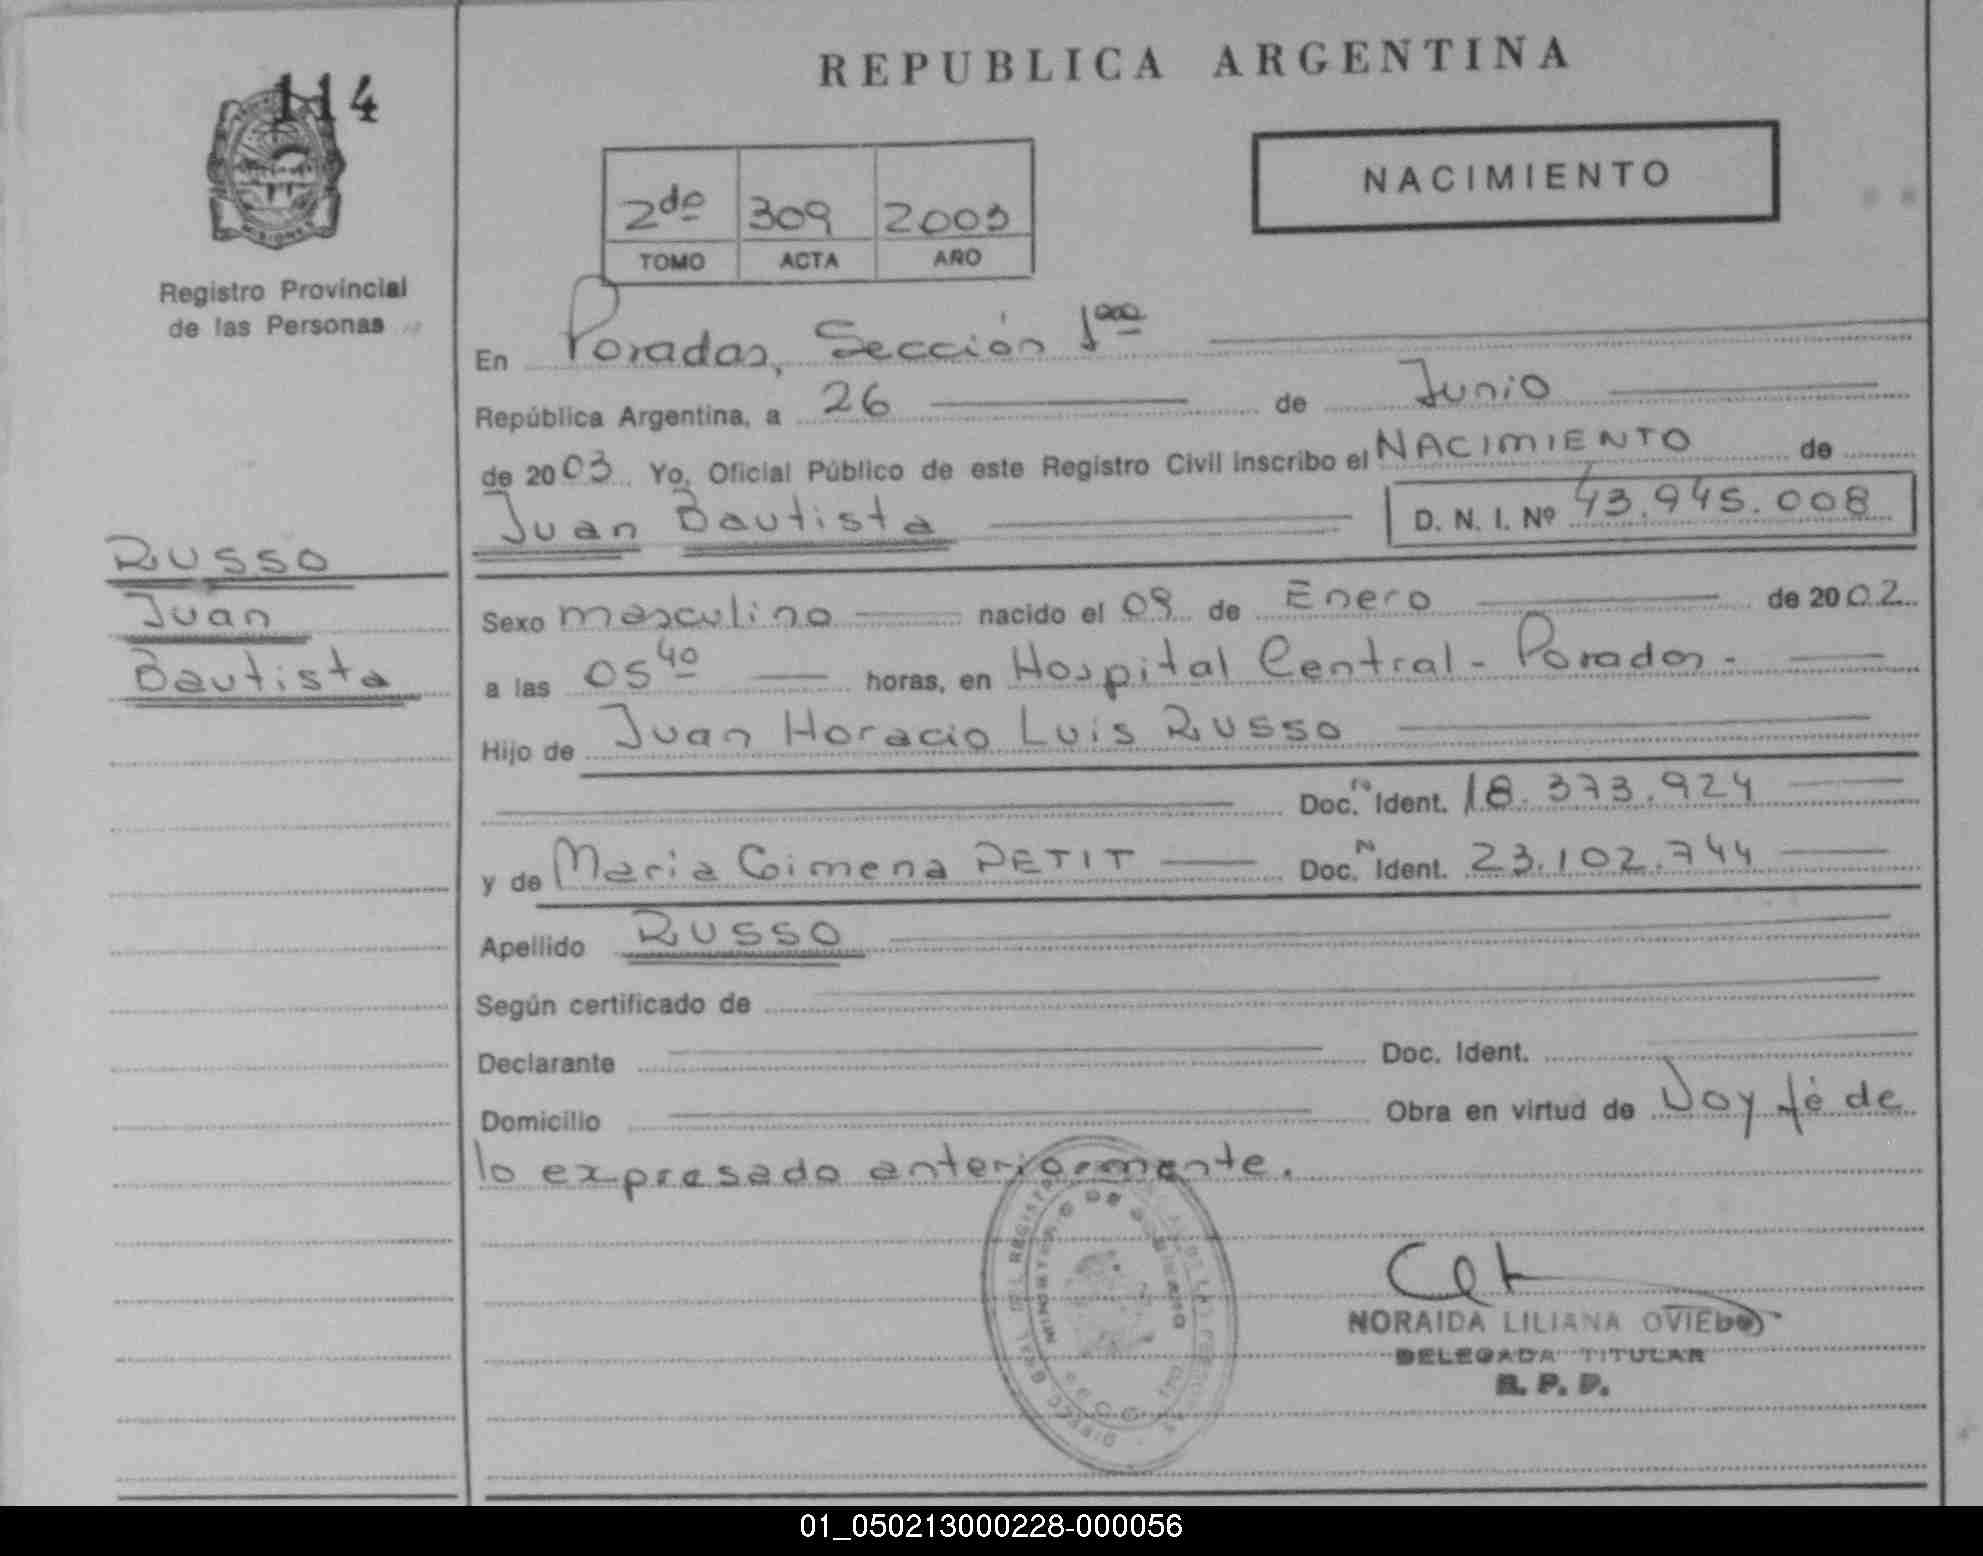 114
MISIONES
Registro Provincial
de las Personas
RUSSO
Juan
Bautista
REPUBLICA ARGENTINA
2do 309 2003
TOMO ACTA AÑO
NACIMIENTO
En Posadas, Sección 1era
República Argentina, a 26 de Junio
de 2003. Yo, Oficial Público de este Registro Civil inscribo el NACIMIENTO de
Juan Bautista D. N. I. Nº 43.945.008
Sexo masculino nacido el 09 de Enero de 2002
a las 05 40 horas, en Hospital Central - Posadas -
Hijo de Juan Horacio Luis RUSSO
Doc. Nº Ident. 18.373.924
y de Maria Gimena PETIT Doc. N Ident. 23.102.744
Apellido RUSSO
Según certificado de
Declarante Doc. Ident.
Domicilio Obra en virtud de Doy fé de
lo expresado anteriormente.
NORAIDA LILIANA OVIEDO
DELEGADA TITULAR
R. P. P.
01_050213000228-000056